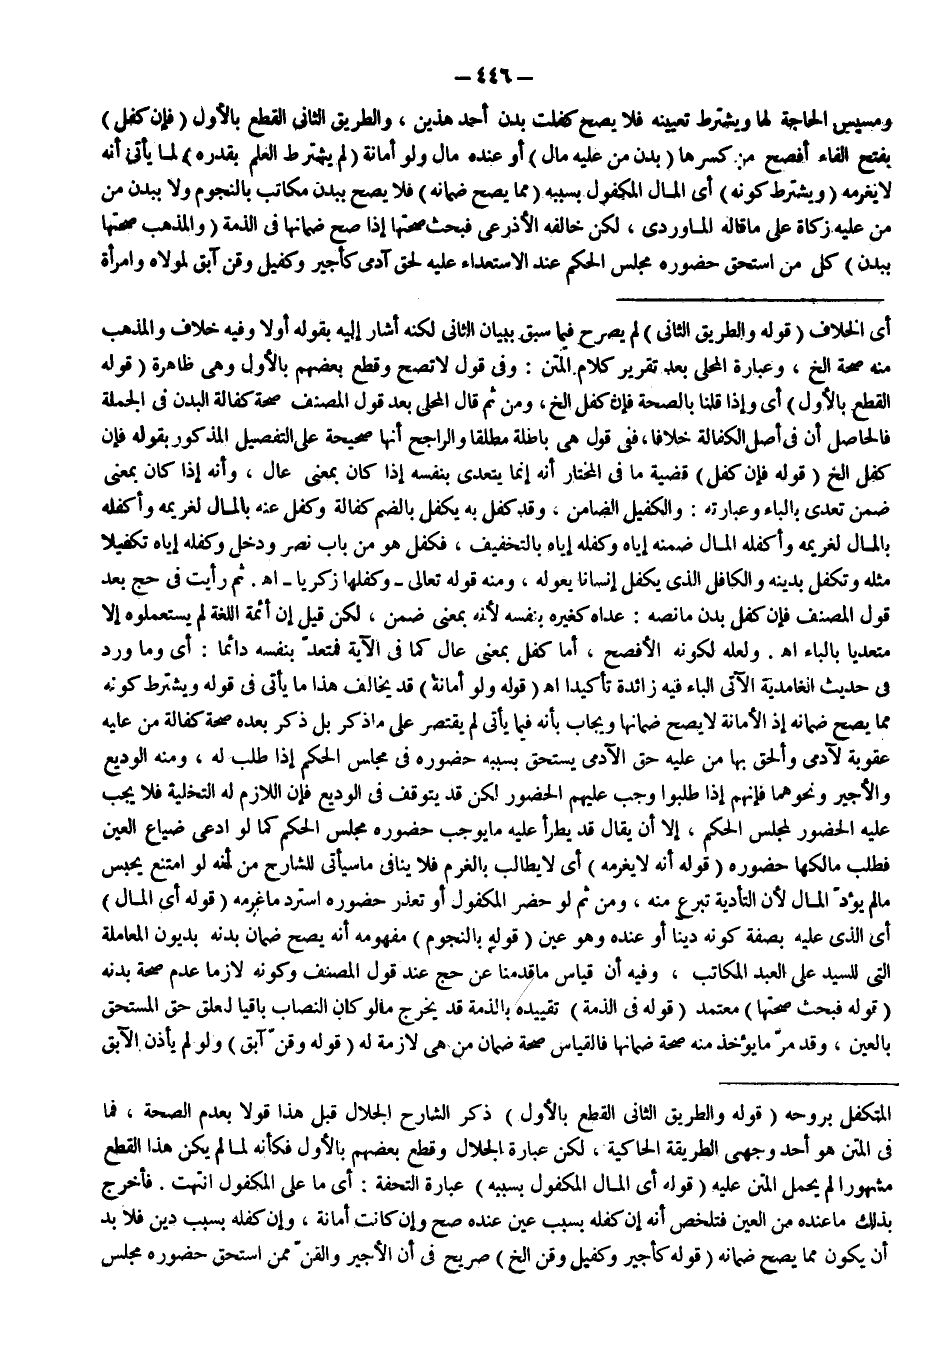 – ٤٤٦ –
ومسيس الحاجة لها ويشترط تعيينه فلا يصح كفلت بدن أحد هذين ، والطريق الثانى القطع بالأول ( فإن كفل )
بفتح الفاء أفصح من كسرها ( بدن من عليه مال ) أو عنده مال ولو أمانة ( لم يشترط العلم بقدره ) لما يأتى أنه
لا يغرمه ( ويشترط كونه ) أى المال المكفول بسببه ( مما يصح ضمانه ) فلا يصح ببدن مكاتب بالنجوم ولا ببدن من
من عليه زكاة على ماقاله الماوردى ، لكن خالفه الأذرعى فبحث صحتها إذا صح ضمانها فى الذمة ( والمذهب صحتها
ببدن ) كل من استحق حضوره مجلس الحكم عند الاستعداء عليه لحق آدمى كأجير وكفيل وقن آبق لمولاه وامرأة
أى الخلاف ( قوله والطريق الثانى ) لم يصرح فيما سبق ببيان الثانى لكنه أشار إليه بقوله أولا وفيه خلاف والمذهب
منه صحة الخ ، وعبارة المحلى بعد تقرير كلام المتن : وفى قول لاتصح وقطع بعضهم بالأول وهى ظاهرة ( قوله
القطع بالأول ) أى وإذا قلنا بالصحة فإن كفل الخ ، ومن ثم قال المحلى بعد قول المصنف صحة كفالة البدن فى الجملة
فالحاصل أن فى أصل الكفالة خلافا ، ففى قول هى باطلة مطلقا والراجح أنها صحيحة على التفصيل المذكور بقوله فإن
كفل الخ ( قوله فإن كفل ) قضية ما فى المختار أنه إنما يتعدى بنفسه إذا كان بمعنى عال ، وأنه إذا كان بمعنى
ضمن تعدى بالباء وعبارته : والكفيل الضامن ، وقد كفل به يكفل بالضم كفالة وكفل عنه بالمال لغريمه وأكفله
بالمال لغريمه وأكفله المال ضمنه إياه وكفله إياه بالتخفيف ، فكفل هو من باب نصر ودخل وكفله إياه تكفيلا
مثله وتكفل بدينه والكافل الذى يكفل إنسانا يعوله ، ومنه قوله تعالى ـ وكفلها زكريا ـ اه . ثم رأيت فى حج بعد
قول المصنف فإن كفل بدن مانصه : عداه كغيره بنفسه لأنه بمعنى ضمن ، لكن قيل إن أئمة اللغة لم يستعملوه إلا
متعديا بالباء اه . ولعله لكونه الأفصح ، أما كفل بمعنى عال كما فى الآية فمتعدّ بنفسه دائما : أى وما ورد
فى حديث الغامدية الآتى الباء فيه زائدة تأكيدا اه ( قوله ولو أمانة ) قد يخالف هذا ما يأتى فى قوله ويشترط كونه
مما يصح ضمانه إذ الأمانة لايصح ضمانها ويجاب بأنه فيما يأتى لم يقتصر على ماذكر بل ذكر بعده صحة كفالة من عليه
عقوبة لآدمى وألحق بها من عليه حق الآدمى يستحق بسببه حضوره فى مجلس الحكم إذا طلب له ، ومنه الوديع
والأجير ونحوهما فإنهم إذا طلبوا وجب عليهم الحضور لكن قد يتوقف فى الوديع فإن اللازم له التخلية فلا يجب
عليه الحضور لمجلس الحكم ، إلا أن يقال قد يطرأ عليه مايوجب حضوره مجلس الحكم كما لو ادعى ضياع العين
فطلب مالكها حضوره ( قوله أنه لايغرمه ) أى لايطالب بالغرم فلا ينافى ماسيأتى للشارح من أنه لو امتنع يحبس
مالم يؤدّ المال لأن التأدية تبرع منه ، ومن ثم لو حضر المكفول أو تعذر حضوره استرد ماغرمه ( قوله أى المال )
أى الذى عليه بصفة كونه دينا أو عنده وهو عين ( قوله بالنجوم ) مفهومه أنه يصح ضمان بدنه بديون المعاملة
التى للسيد على العبد المكاتب ، وفيه أن قياس ماقدمنا عن حج عند قول المصنف وكونه لازما عدم صحة بدنه
( قوله فبحث صحتها ) معتمد ( قوله فى الذمة ) تقييده بالذمة قد يخرج مالو كان النصاب باقيا لعلق حق المستحق
بالعين ، وقد مرّ مايؤخذ منه صحة ضمانها فالقياس صحة ضمان من هى لازمة له ( قوله وقنّ آبق ) ولو لم يأذن الآبق
المتكفل بروحه ( قوله والطريق الثانى القطع بالأول ) ذكر الشارح الجلال قبل هذا قولا بعدم الصحة ، فما
فى المتن هو أحد وجهى الطريقة الحاكية ، لكن عبارة الجلال وقطع بعضهم بالأول فكأنه لما لم يكن هذا القطع
مشهورا لم يحمل المتن عليه ( قوله أى المال المكفول بسببه ) عبارة التحفة : أى ما على المكفول انتهت . فأخرج
بذلك ماعنده من العين فتلخص أنه إن كفله بسبب عين عنده صح وإن كانت أمانة ، وإن كفله بسبب دين فلا بد
أن يكون مما يصح ضمانه ( قوله كأجير وكفيل وقن الخ ) صريح فى أن الأجير والقنّ ممن استحق حضوره مجلس